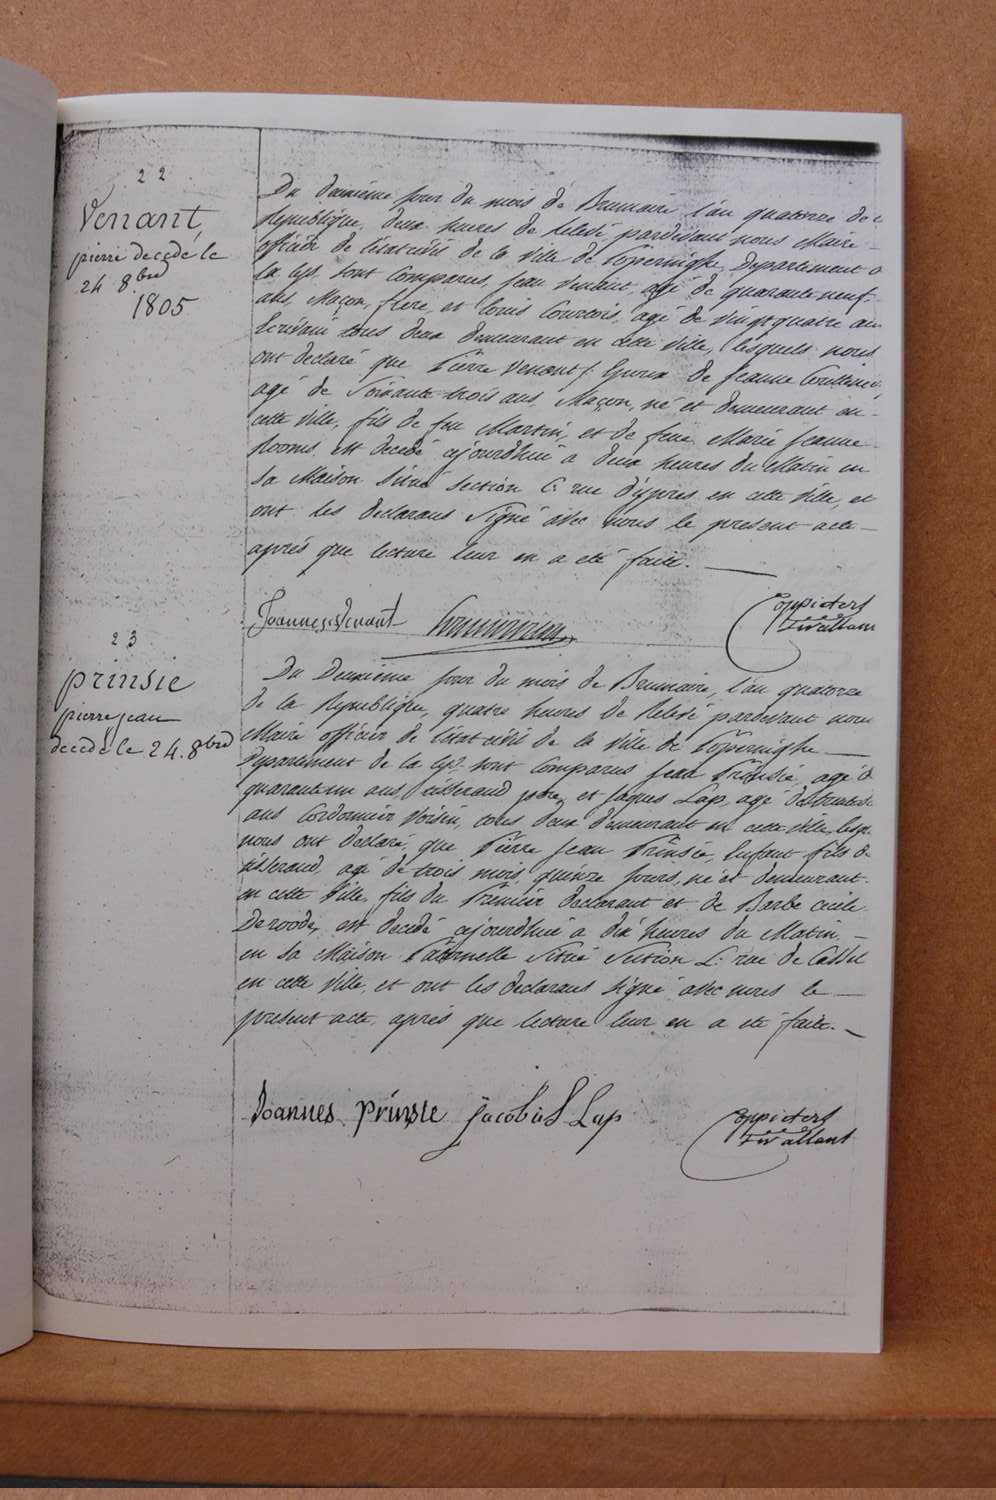 22
Venant,
pierre decedé le
24 8bre
1805
Du deuxième jour du mois de Brumaire l'an quatorze de la
Republique, deux heures de relevé pardevant nous Maire
officier de l'état civil de la Ville de Poperinghe, Departement d
la Lys sont Comparus, Jean Venant agé de quarante neuf
ans, Maçon, frere, et Louis Courtois, agé de vingt quatre ans
Ecrivain tous deux demeurant en cette Ville, lesquels nous
ont declaré que Pierre Venant, Epoux de Jeanne
agé de Soixante trois ans, Maçon, né et demeurant en
cette Ville, fils de feu Martin, et de feue Marie Jeanne
Rooms, est decedé ajourdhui à deux heures du Matin en
sa Maison située Section C. rue d'ypres en cette Ville, et
ont les declarans Signé avec nous le present acte
après que lecture leur en a eté faite.
Joannes Venant
Coppieters
23
prinsie
pierre jean
decede le 24. 8bre
Du Deuxième jour du mois de Brumaire, l'an quatorze
de la Republique, quatre heures de relevé pardevant nous
Maire officier de l'état civil de la Ville de Poperinghe
Departement de la Lys. sont Comparus Jean Prinsie, agé d
quarante un ans, tisserand pere, et Jaques Lap, agé de trente
ans Cordonnier Voisin, tous deux demeurant en cette Ville, lesq
nous ont declaré, que Pierre Jean Prinsie, Enfant fils de
tisserand, agé de trois mois quinze jours, né et demeurant
en cette Ville, fils du Premier declarant et de Barbe Cecile
Deroode, est decedé ajourdhui à dix heures du Matin,
en sa Maison Paternelle Situé Section L. rue de Cassel
en cette Ville, et ont les declarans signé avec nous le
present acte, après que lecture leur en a eté faite.
Joannes Prinsie Jacobus Lap
Coppieters